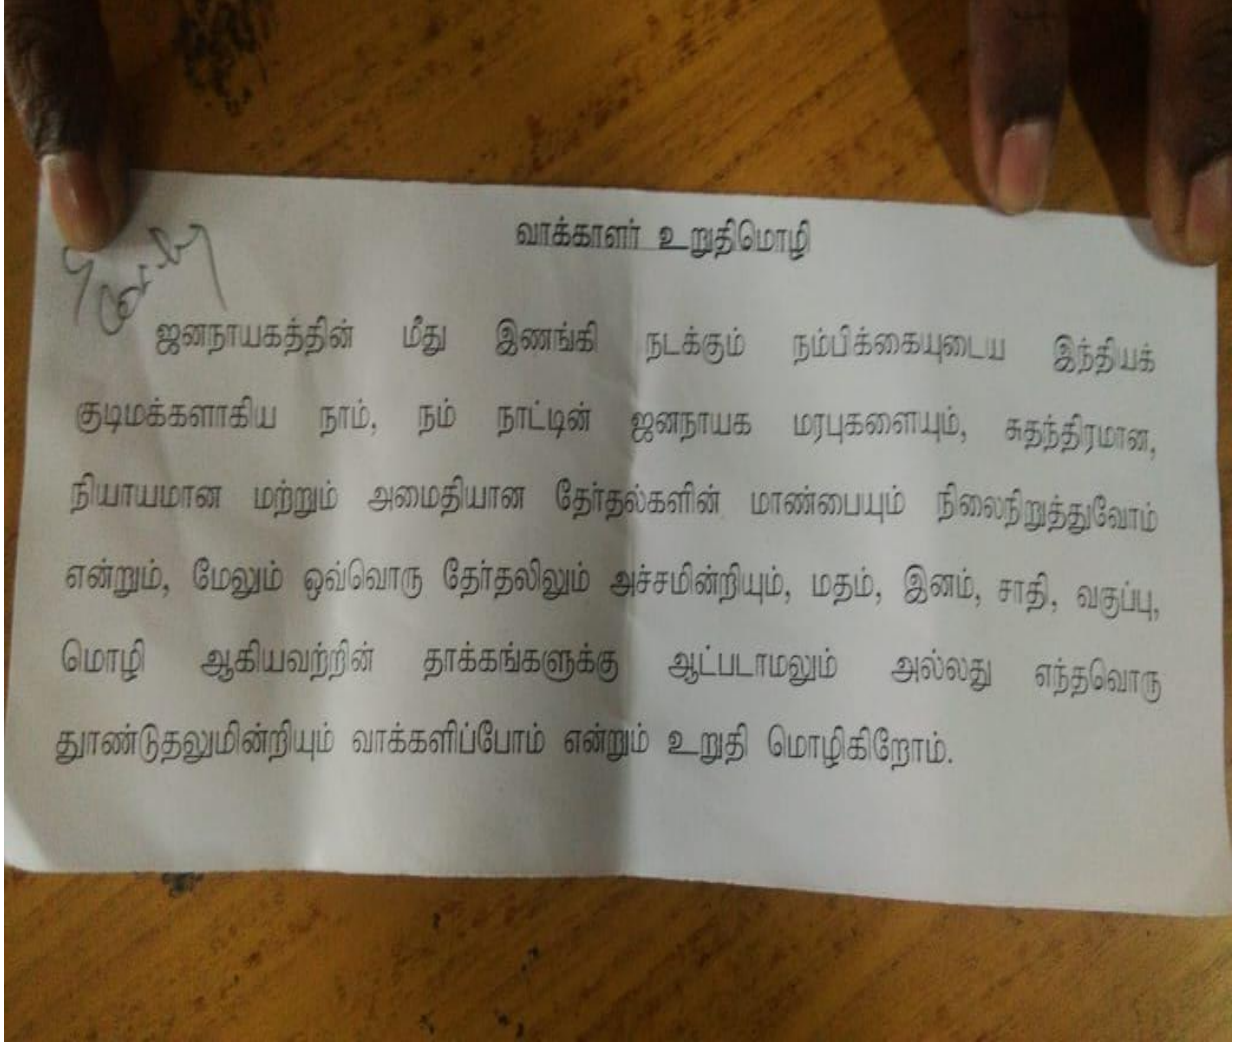 வாக்காளர் உறுதிமொழி
ஜனநாயகத்தின் மீது இணங்கி நடக்கும் நம்பிக்கையுடைய இந்தியக்
குடிமக்களாகிய நாம், நம் நாட்டின் ஜனநாயக மரபுகளையும், சுதந்திரமான,
நியாயமான மற்றும் அமைதியான தேர்தல்களின் மாண்பையும் நிலைநிறுத்துவோம்
என்றும், மேலும் ஒவ்வொரு தேர்தலிலும் அச்சமின்றியும், மதம், இனம், சாதி, வகுப்பு,
மொழி ஆகியவற்றின் தாக்கங்களுக்கு ஆட்படாமலும் அல்லது எந்தவொரு
தூண்டுதலுமின்றியும் வாக்களிப்போம் என்றும் உறுதி மொழிகிறோம்.